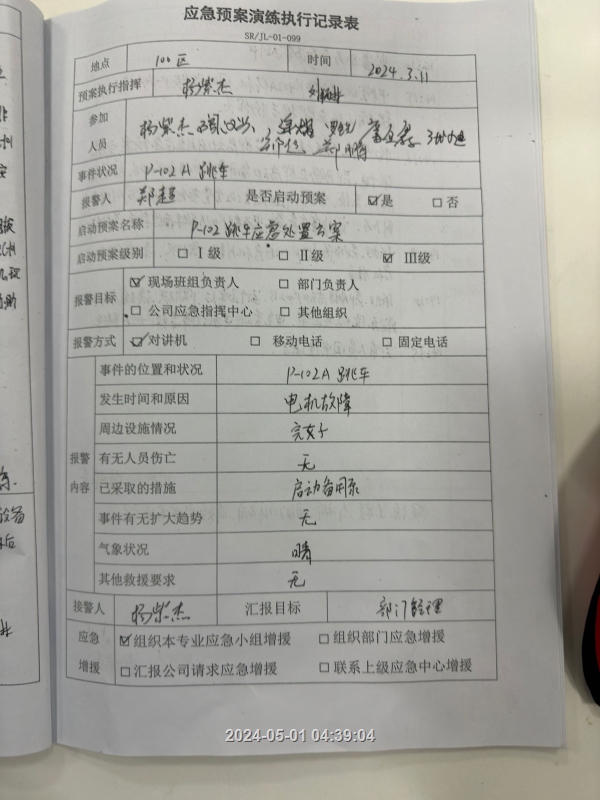 应急预案演练执行记录表
SR/JL-01-099
地点 100区 时间 2024.3.11
预案执行指挥 杨紫杰
参加 杨紫杰
人员 郑鹏
事件状况 P-102A 跳车
报警人 郑超 是否启动预案 ☑是 □否
启动预案名称 P-102跳车应急处置方案
启动预案级别 □Ⅰ级 □Ⅱ级 ☑Ⅲ级
报警目标 ☑现场班组负责人 □部门负责人
□公司应急指挥中心 □其他组织
报警方式 ☑对讲机 □移动电话 □固定电话
事件的位置和状况 P-102A 跳车
发生时间和原因 电机故障
周边设施情况 完好
报警 有无人员伤亡 无
内容 已采取的措施 启动备用泵
事件有无扩大趋势 无
气象状况 晴
其他救援要求 无
接警人 杨紫杰 汇报目标 部门经理
应急 ☑组织本专业应急小组增援 □组织部门应急增援
增援 □汇报公司请求应急增援 □联系上级应急中心增援
2024-05-01 04:39:04